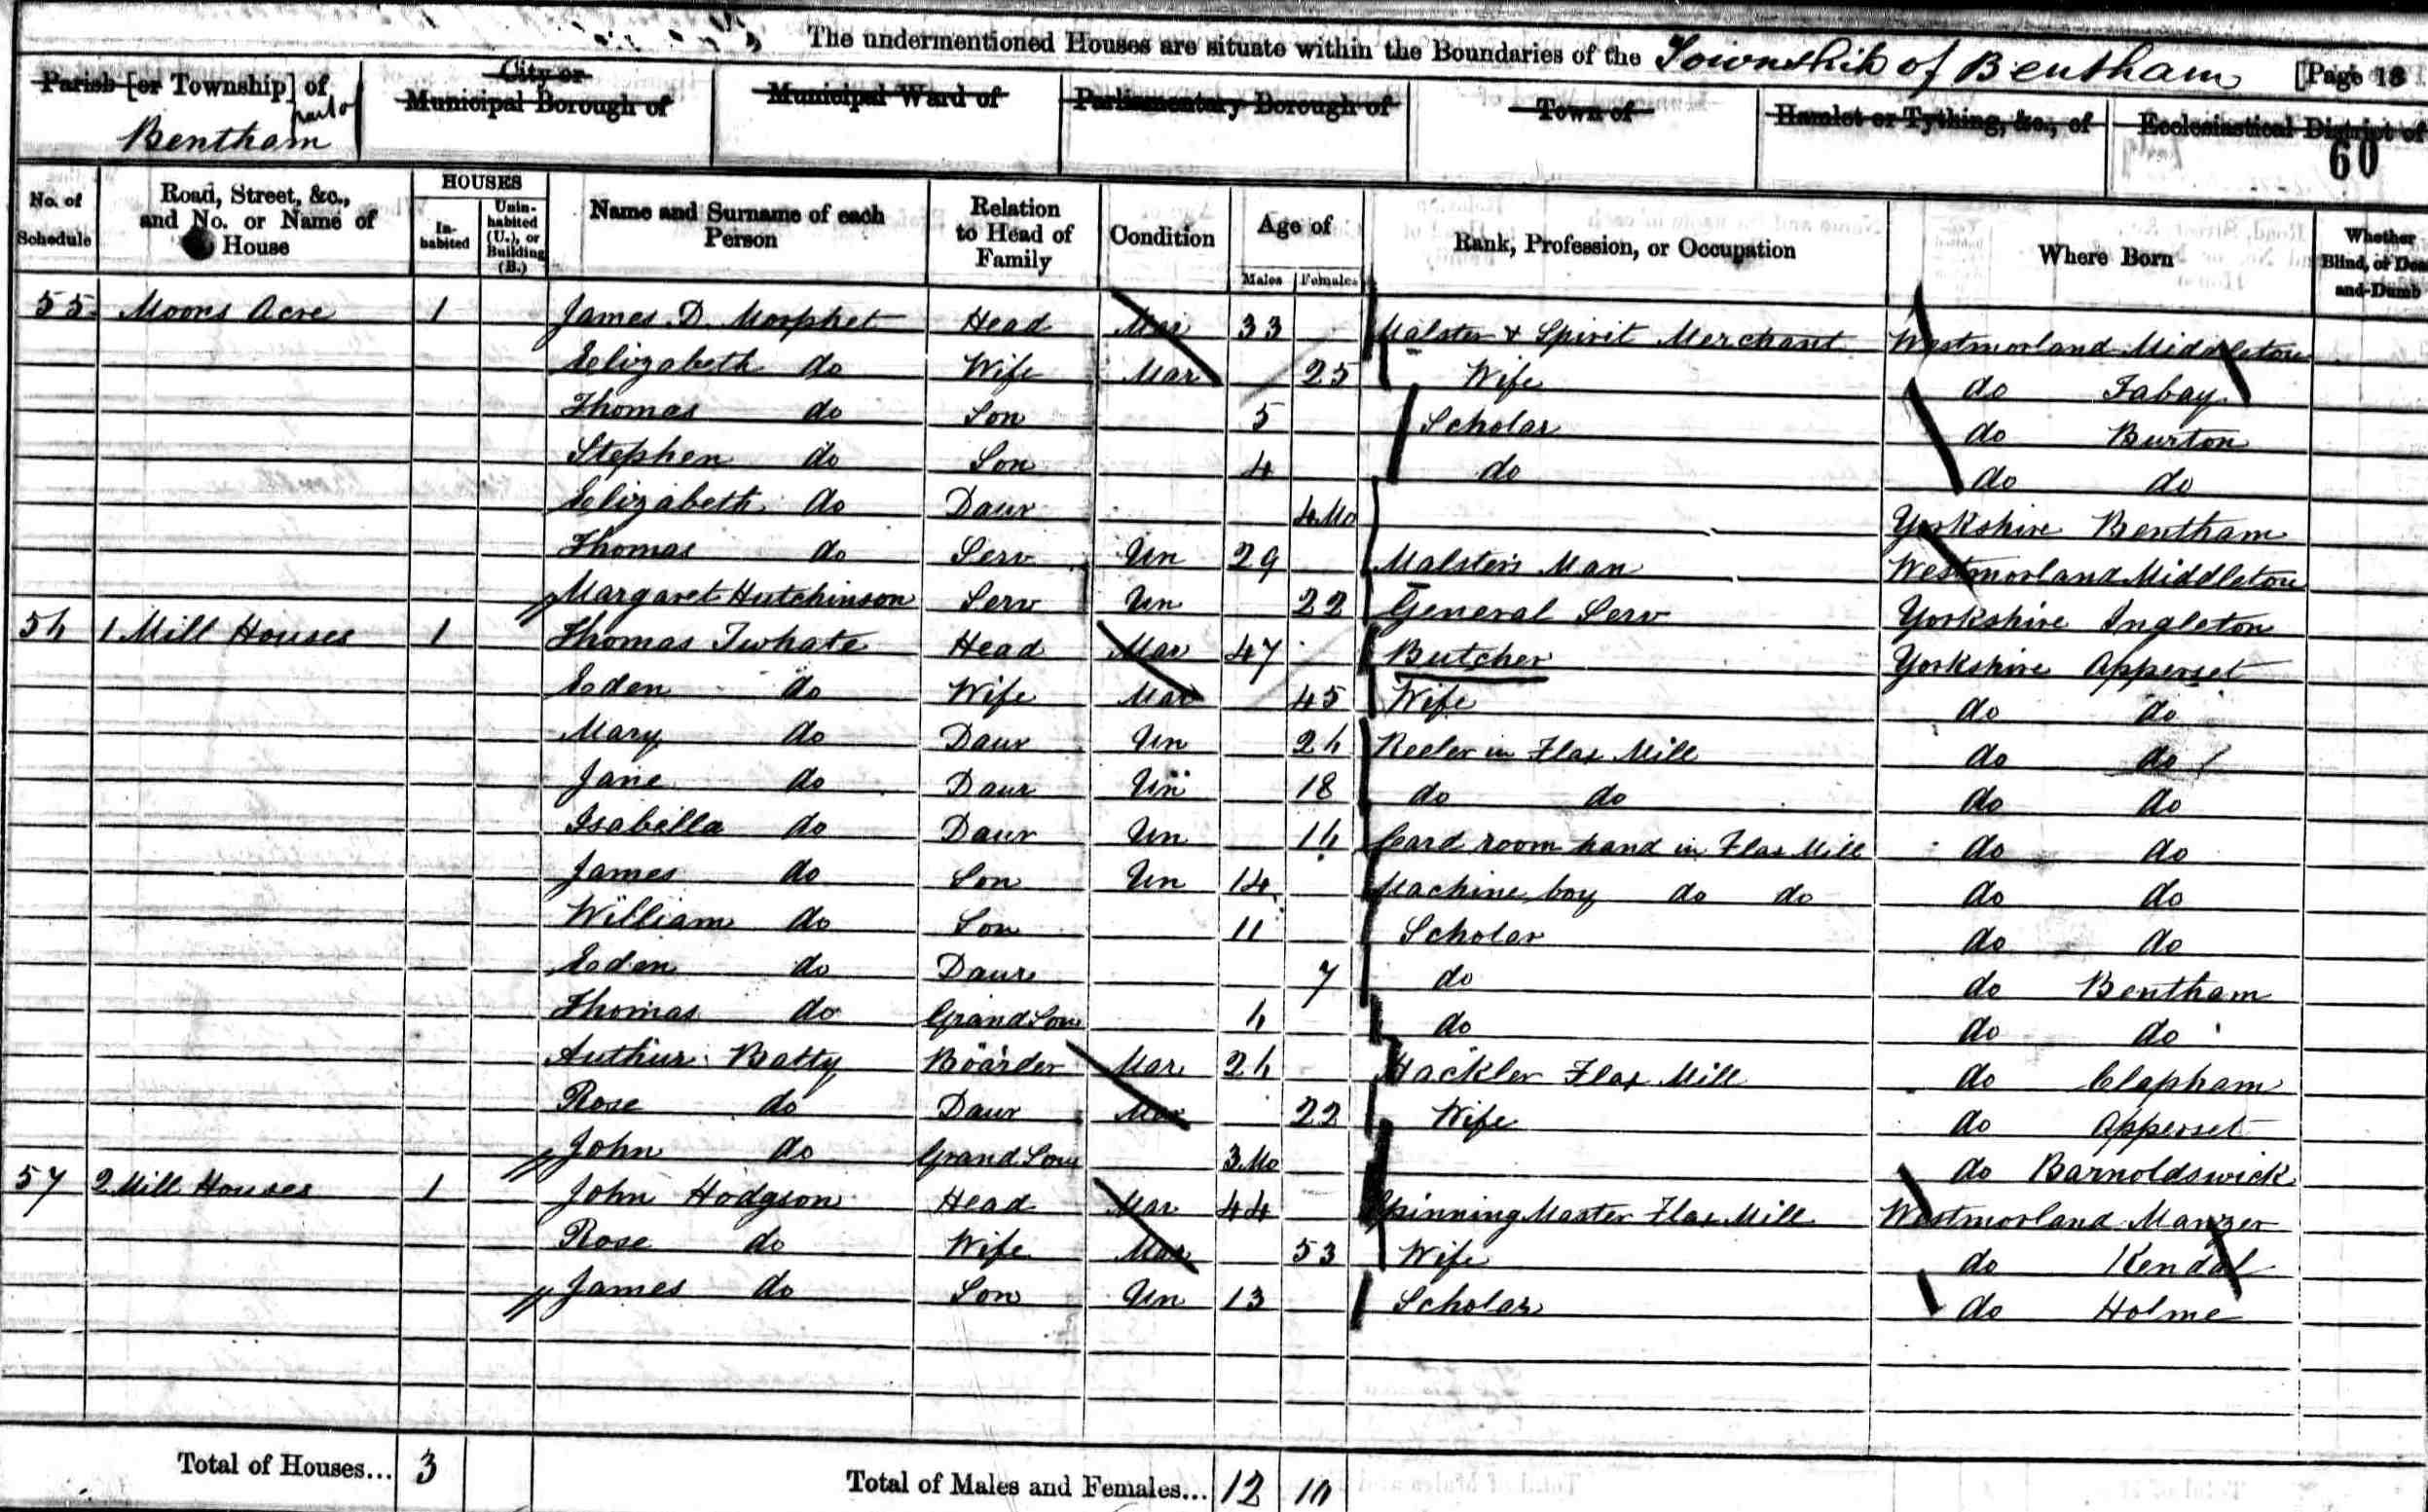 The undermentioned Houses are situate within the Boundaries of the Township of Bentham [Page 18
Parish [or Township] of City or Municipal Borough of Municipal Ward of Parliamentary Borough of Town of Hamlet or Tything, &c., of Ecclesiastical District of
Bentham part of
60
No. of Schedule Road, Street, &c., and No. or Name of House HOUSES Inhabited Uninhabited (U.), or Building (B.) Name and Surname of each Person Relation to Head of Family Condition Age of Males Females Rank, Profession, or Occupation Where Born Whether Blind, or Deaf-and-Dumb
55 Moors Acre 1 James D. Morphet Head Mar 33 Malster & Spirit Merchant Westmorland Middleton
Elizabeth do Wife Mar 25 Wife do Tabay
Thomas do Son 5 Scholar do Burton
Stephen do Son 4 do do do
Elizabeth do Daur 4 Mo Yorkshire Bentham
Thomas do Serv Un 29 Malster's Man Westmorland Middleton
Margaret Hutchinson Serv Un 22 General Serv Yorkshire Ingleton
56 1 Mill Houses 1 Thomas Twhate Head Mar 47 Butcher Yorkshire Apperset
Eden do Wife Mar 45 Wife do do
Mary do Daur Un 26 Reeler in Flax Mill do do
Jane do Daur Un 18 do do do do
Isabella do Daur Un 16 Card room hand in Flax Mill do do
James do Son Un 14 Machine boy do do do do
William do Son 11 Scholar do do
Eden do Daur 7 do do Bentham
Thomas do Grand Son 6 do do do
Authur Batty Boarder Mar 26 Hackler Flax Mill do Clapham
Rose do Daur Mar 22 Wife do Apperset
John do Grand Son 3 Mo do Barnoldswick
57 2 Mill Houses 1 John Hodgson Head Mar 44 Spinning Master Flax Mill Westmorland Manzer
Rose do Wife Mar 53 Wife do Kendal
James do Son Un 13 Scholar do Holme
Total of Houses... 3 Total of Males and Females... 12 10